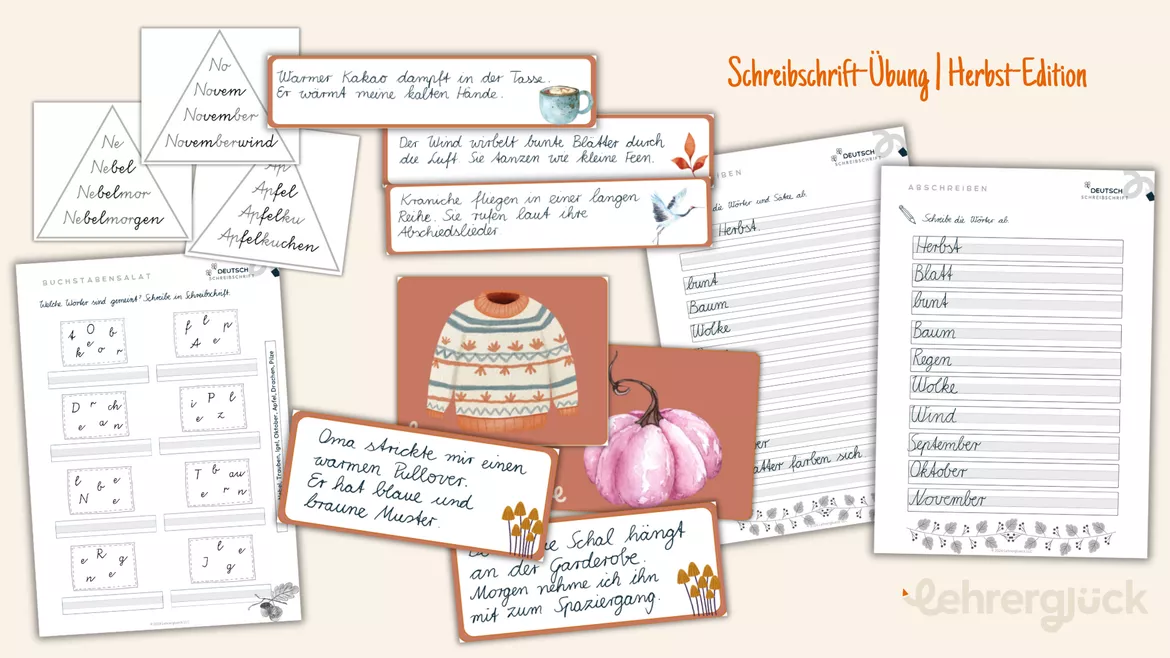 Schreibschrift-Übung | Herbst-Edition
No
Novem
November
Novemberwind
Ne
Nebel
Nebelmor
Nebelmorgen
Ap
Apfel
Apfelku
Apfelkuchen
Warmer Kakao dampft in der Tasse.
Er wärmt meine kalten Hände.
Der Wind wirbelt bunte Blätter durch
die Luft. Sie tanzen wie kleine Feen.
Kraniche fliegen in einer langen
Reihe. Sie rufen laut ihre
Abschiedslieder
BUCHSTABENSALAT
DEUTSCH
SCHREIBSCHRIFT
Welche Wörter sind gemeint? Schreibe in Schreibschrift.
t O b
e
k o r
f l p
A e
D r ch
e a n
i P l
e z
l b e
N e
T b au
e r n
e R g
n e
l e
I g
Trauben, Igel, Oktober, Apfel, Drachen, Pilze
Oma strickte mir einen
warmen Pullover.
Er hat blaue und
braune Muster.
Schal hängt
an der Garderobe.
Morgen nehme ich ihn
mit zum Spaziergang.
DEUTSCH
SCHREIBSCHRIFT
die Wörter und Sätze ab.
Herbst.
bunt
Baum
Wolke
färben sich
ABSCHREIBEN
DEUTSCH
SCHREIBSCHRIFT
Schreibe die Wörter ab.
Herbst
Blatt
bunt
Baum
Regen
Wolke
Wind
September
Oktober
November
Lehrerglück